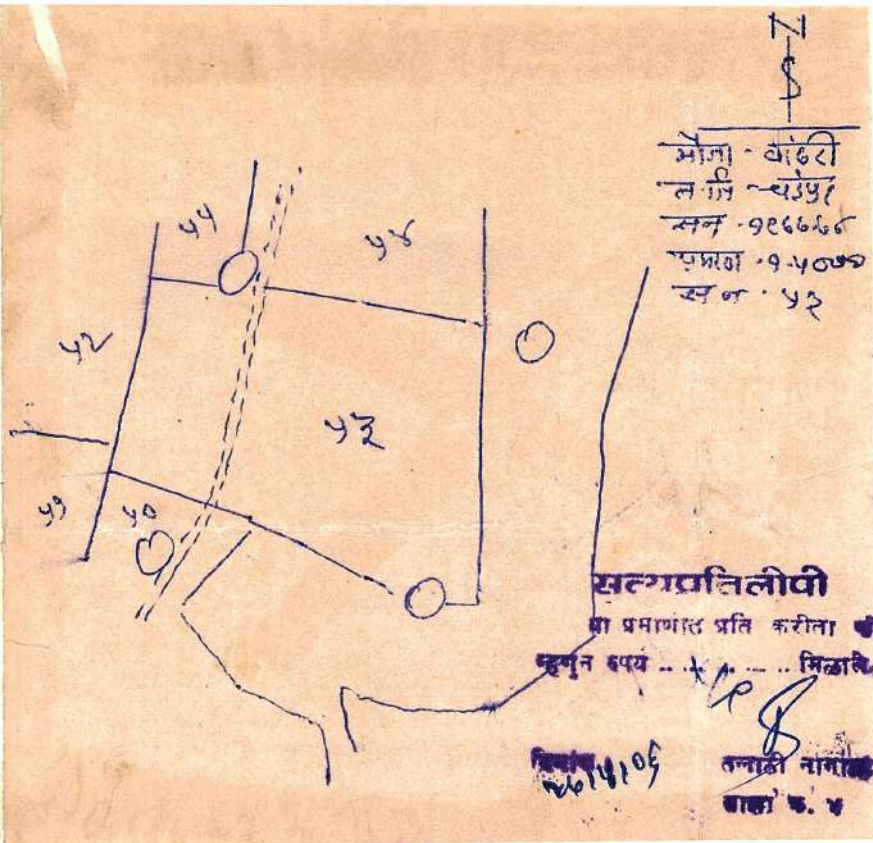 N
S
मौजा - वांढरी
त. जि - चंद्रपुर
सन -
प्रमाण
स न . ५३
५५
५४
५२
५३
५१
५०
सत्यप्रतिलीपी
या प्रमाणात प्रति करीता फी
म्हणुन रुपये .. ... मिळाले
दिनांक
तलाठी नागाळा
साझा क्र. ४